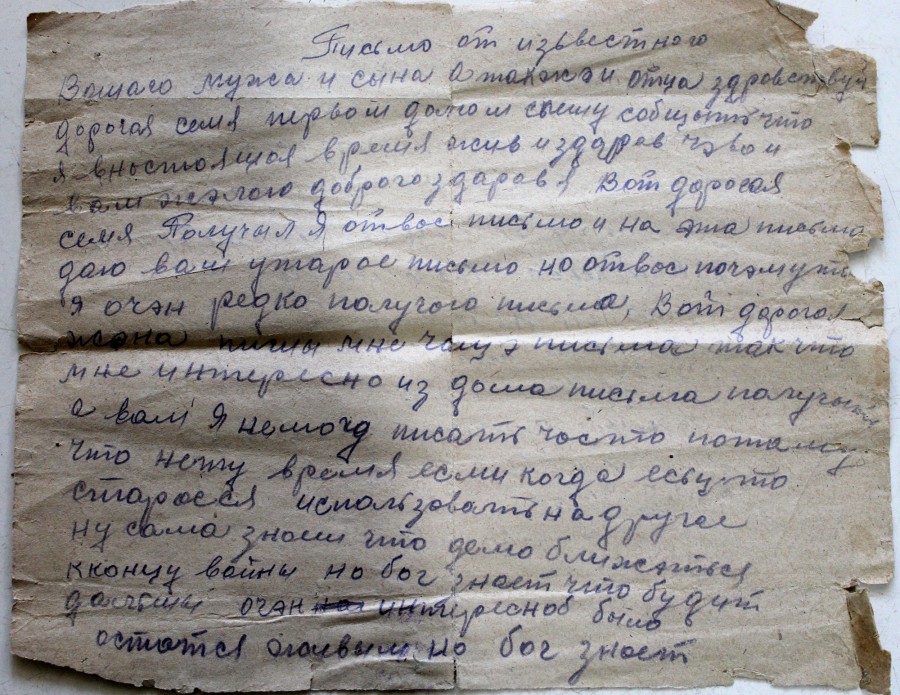 Письмо от изввестного
Вашаго мужа и сына а также и отца здравствуй
дорогая семя первом долгом спешу собщить что
я внастоящая время жив и здаров чэво и
вам жэлаю доброго здаровя Вот дорогая
семя Получил Я отвас письмо и на эта письмо
даю вам утарое письмо но отвас почэмута
я очэн редко получаю письма, Вот дорогая
жэна пишы мне чащэ письма так что
мне интересно из дома письма получить
а вам Я немогу писать часто потаму
что нету время если когда есьцъто
стараеся использовать на другае
ну сама знаеш что дело ближэться
кконцу вайны но бог знает что будит
далшы очэн интересноб было
остатся жывым но бог знает